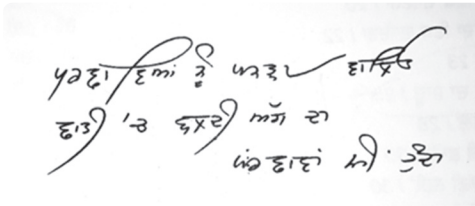 ਪਰਛਾਵਿਆਂ ਨੂੰ ਪਕੜਨ ਵਾਲਿਓ
ਛਾਤੀ 'ਚ ਬਲਦੀ ਅੱਗ ਦਾ
ਪਰਛਾਵਾਂ ਨੀਂ ਹੁੰਦਾ